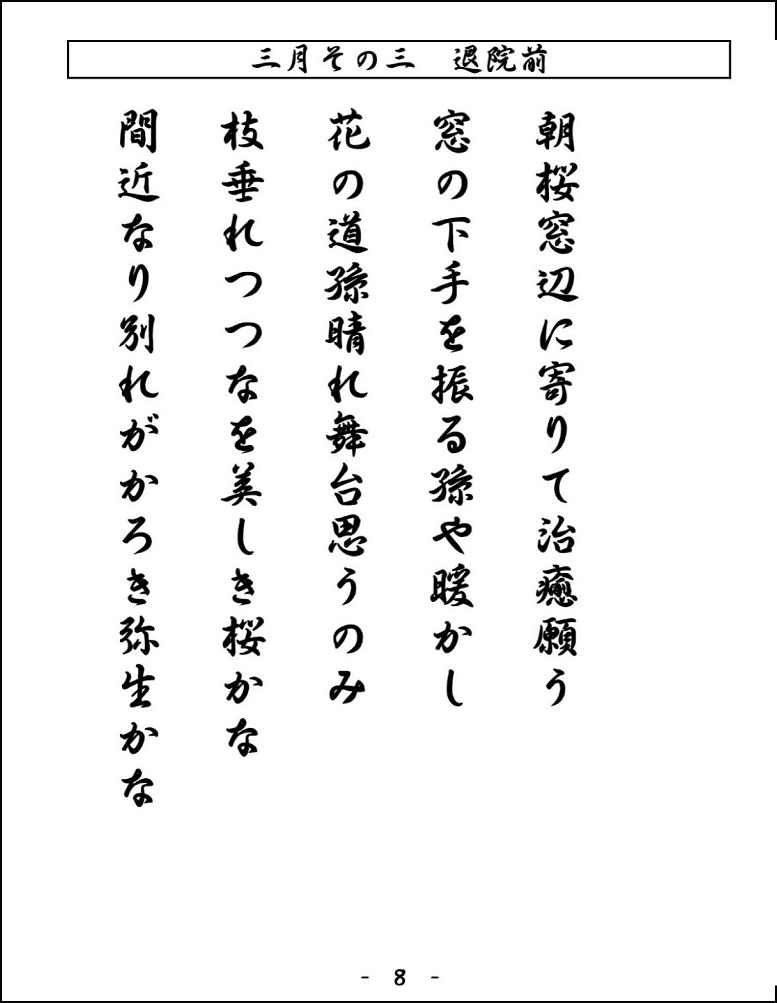 三月その三　退院前
朝桜窓辺に寄りて治癒願う
窓の下手を振る孫や暖かし
花の道孫晴れ舞台思うのみ
枝垂れつつなを美しき桜かな
間近なり別れがかろき弥生かな
- 8 -